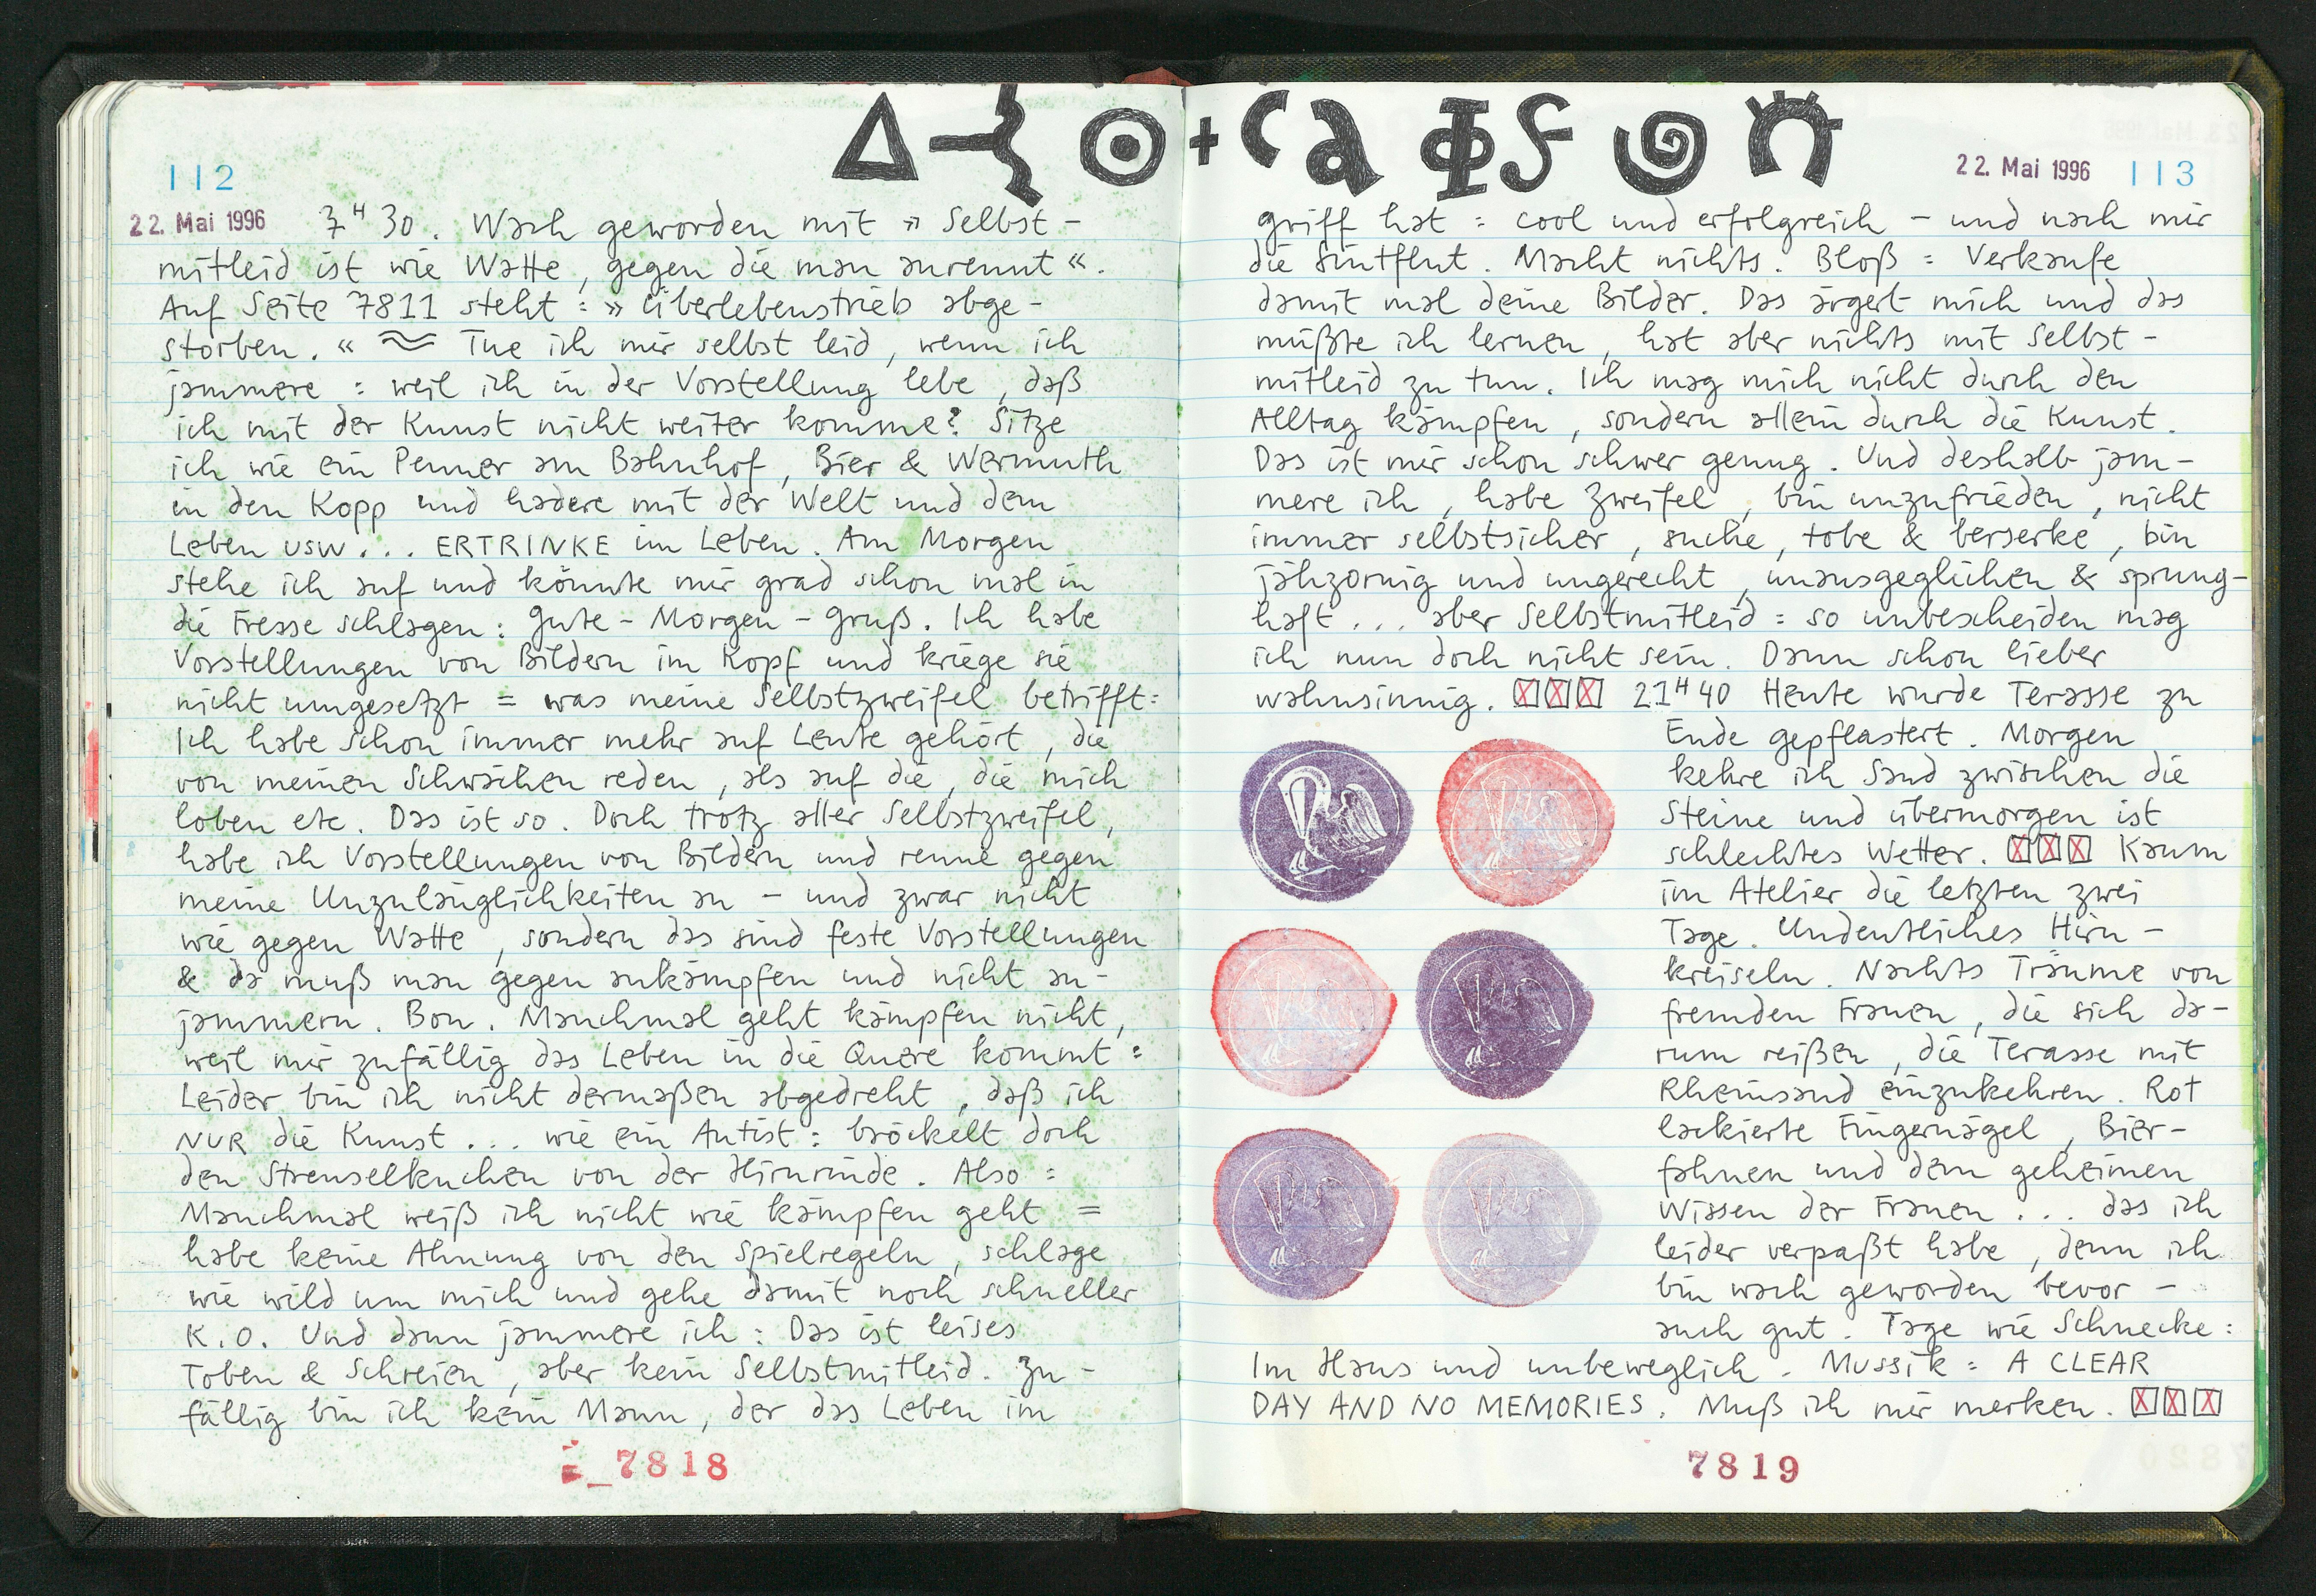 112
22. Mai 1996 7ᴴ30. Wach geworden mit » Selbst-
mitleid ist wie Watte, gegen die man anrennt «.
Auf Seite 7811 steht : » Überlebenstrieb abge-
storben. « ≈ Tue ich mir selbst leid, wenn ich
jammere : weil ich in der Vorstellung lebe, daß
ich mit der Kunst nicht weiter komme? Sitze
ich wie ein Penner am Bahnhof, Bier & Wermuth
in den Kopp und hadere mit der Welt und dem
Leben USW... ERTRINKE im Leben. Am Morgen
stehe ich auf und könnte mir grad schon mal in
die Fresse schlagen : Gute-Morgen-Gruß. Ich habe
Vorstellungen von Bildern im Kopf und kriege sie
nicht umgesetzt = was meine Selbstzweifel betrifft:
Ich habe schon immer mehr auf Leute gehört, die
von meinen Schwächen reden, als auf die, die mich
loben etc. Das ist so. Doch trotz aller Selbstzweifel,
habe ich Vorstellungen von Bildern und renne gegen
meine Unzulänglichkeiten an – und zwar nicht
wie gegen Watte, sondern das sind feste Vorstellungen
& da muß man gegen ankämpfen und nicht an-
jammern. Bon. Manchmal geht kämpfen nicht,
weil mir zufällig das Leben in die Quere kommt :
Leider bin ich nicht dermaßen abgedreht, daß ich
NUR die Kunst... wie ein Autist : bröckelt doch
den Streuselkuchen von der Hirnrinde. Also :
Manchmal weiß ich nicht wie kämpfen geht =
habe keine Ahnung von den Spielregeln, schlage
wie wild um mich und gehe damit noch schneller
K.O. Und dann jammere ich : Das ist leises
Toben & Schreien, aber kein Selbstmitleid. Zu-
fällig bin ich kein Mann, der das Leben im
7818
22. Mai 1996 113
Griff hat : cool und erfolgreich – und nach mir
die Sintflut. Macht nichts. Bloß : Verkaufe
damit mal deine Bilder. Das ärgert mich und das
müßte ich lernen, hat aber nichts mit Selbst-
mitleid zu tun. Ich mag mich nicht durch den
Alltag kämpfen, sondern allein durch die Kunst.
Das ist mir schon schwer genug. Und deshalb jam-
mere ich, habe Zweifel, bin unzufrieden, nicht
immer selbstsicher, suche, tobe & berserke, bin
jähzornig und ungerecht, unausgeglichen & sprung-
haft... aber Selbstmitleid : so unbescheiden mag
ich nun doch nicht sein. Dann schon lieber
wahnsinnig. ☒☒☒ 21ᴴ40 Heute wurde Terasse zu
Ende gepflastert. Morgen
kehre ich Sand zwischen die
Steine und übermorgen ist
schlechtes Wetter. ☒☒☒ Kaum
im Atelier die letzten zwei
Tage. Undeutliches Hirn-
kreiseln. Nachts Träume von
fremden Frauen, die sich da-
rum reißen, die Terasse mit
Rheinsand einzukehren. Rot
lackierte Fingernägel, Bier-
fahnen und dem geheimen
Wissen der Frauen... das ich
leider verpaßt habe, denn ich
bin wach geworden bevor –
auch gut. Tage wie Schnecke :
Im Haus und unbeweglich. Mussik : A CLEAR
DAY AND NO MEMORIES. Muß ich mir merken. ☒☒☒
7819